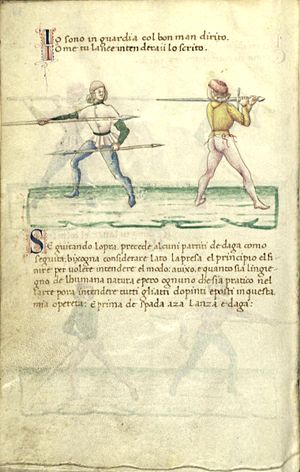 Io sono in guardia col bon man dirito.
Come tu lasie intenderaii lo scrito.
Seguitando lopra. precede alcuni partiti de daga como
seguita. bixogna considerare lato la presa el principio el fi
nire per volere intendere el modo. avixo. e quanto sia linge
gno de lhumana natura e pero ognuno che sia pratico nel
larte pora intendere tutti gli atti dopinti e posti in questa
mia opereta: E prima de spada aza lanza e daga: